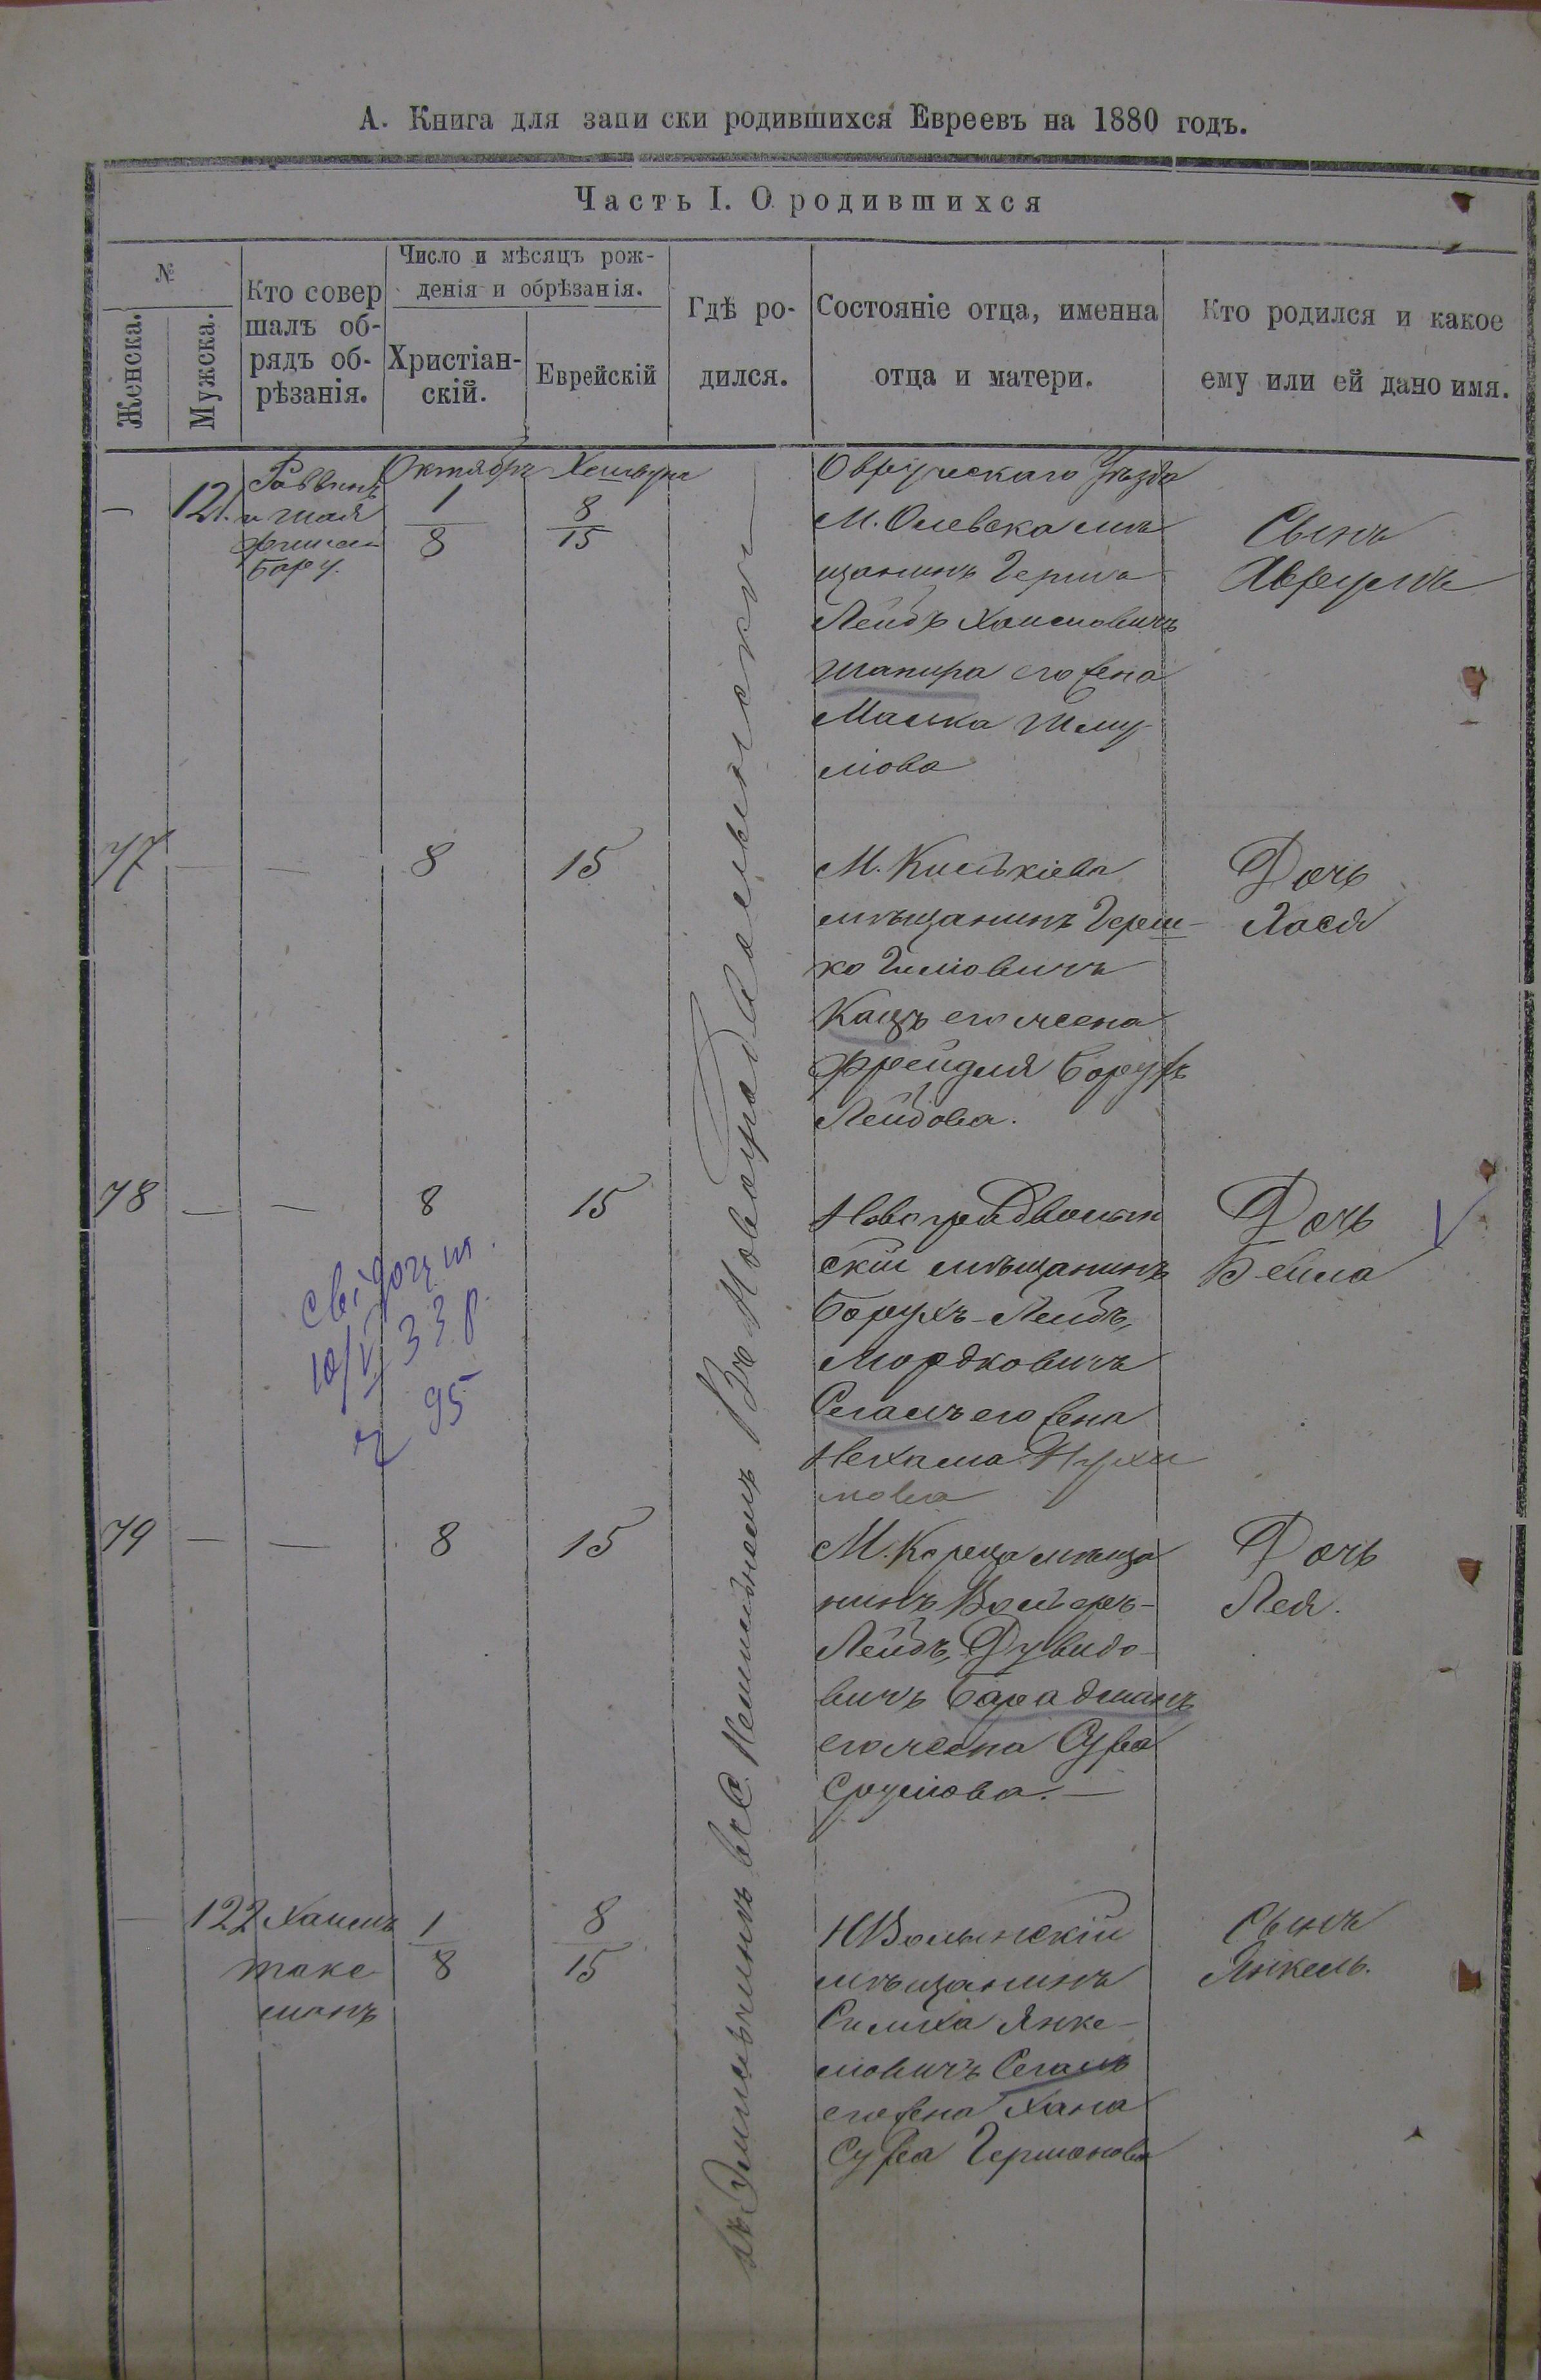 А. Книга для записки родившихся Евреевъ на 1880 годъ.
Часть I. О родившихся
№
Женска.
Мужска.
Кто совер
шалъ об-
рядъ об-
рѣзанія.
Число и мѣсяцъ рож-
денія и обрѣзанія.
Христіан-
скій.
Еврейскій
Гдѣ ро-
дился.
Состояніе отца, именна
отца и матери.
Кто родился и какое
ему или ей дано имя.
— 121.
Раввинъ
и Шая
Октябрь
1
8
Хешвун
8
15
Овручскаго Уѣзда
М. Олевска мѣ
щанинъ Герша
Лейбъ Хаимовичъ
Шапира его жена
Малка Шму
лiова
Сынъ
Аврумъ
77 — — 8 15
М.
мѣщанинъ Герш-
ко
Кацъ его жена
Фрейдля Борухъ
Лейбова.
Дочь
Хася
78 — — 8 15
Новоградволын
скій мѣщанинъ
Борухъ-Лейбъ,
Мордковичъ
Сегалъ его жена
Нехама Нухи
мова
Дочь
Бейла
V
свідоцт.
10/V 33 р.
ч 95
79 — — 8 15
М. Кореца мѣща
нинъ Волъ-
Лейбъ, Дувидо-
вичъ
его жена Сура
Срулiова. —
Дочь
Лея.
— 122
Хаимъ
Такс
манъ
1
8
8
15
НВолынскій
мѣщанинъ
Симха Янке-
лiовичъ Сегалъ
его жена Хана
Сура Гершонова
Сынъ
Янкель.
Въ Новоградволынски